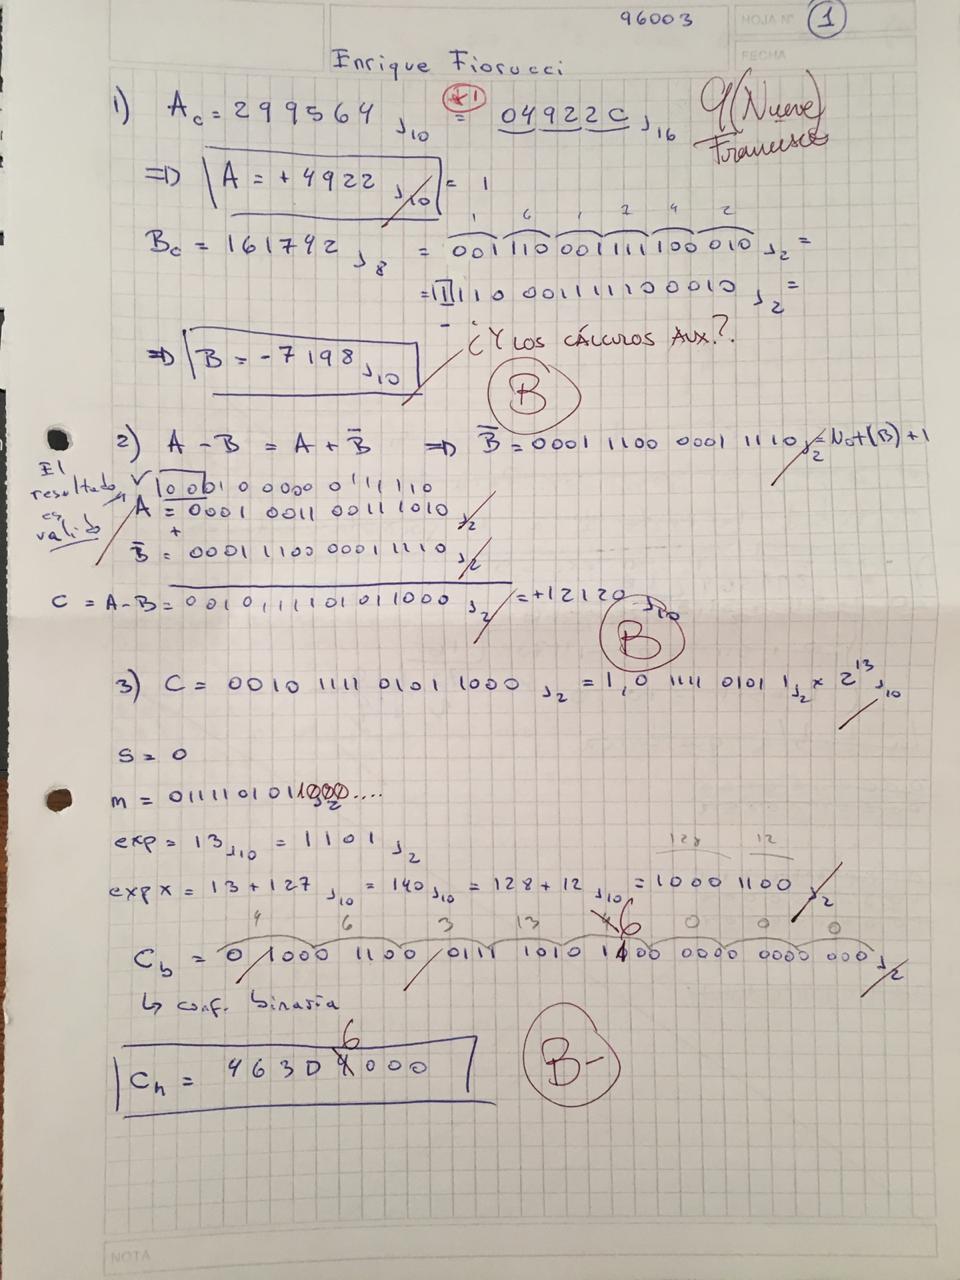 96003 HOJA Nº 1
FECHA
Enrique Fiorucci
1) Ac = 299564 ⌋10 = 04922C ⌋16
*1
9 (Nueve)
Francisco
=> A = +4922 ⌋10 = 1
1 6 1 7 4 2
Bc = 161742 ⌋8 = 001 110 001 111 100 010 ⌋2 =
= 1110 0011 1110 0010 ⌋2 =
=> B = -7198 ⌋10
¿Y LOS CÁLCULOS AUX.?
B
2) A - B = A + B̄ => B̄ = 0001 1100 0001 1110 ⌋2 = Not(B) + 1
El resultado es valido
✓ 100010 0000 0111110
A = 0001 0011 0011 1010 ⌋2
+
B̄ = 0001 1100 0001 1110 ⌋2
C = A-B = 0010 1111 0101 1000 ⌋2 = +12120 ⌋10
B
3) C = 0010 1111 0101 1000 ⌋2 = 1,0 1111 0101 1 ⌋2 x 2^13 ⌋10
S = 0
m = 0111101011000....
exp = 13 ⌋10 = 1101 ⌋2
128 12
exp x = 13 + 127 ⌋10 = 140 ⌋10 = 128 + 12 ⌋10 = 1000 1100 ⌋2
4 6 3 13 4 6 0 0 0
Cb = 0 1000 1100 0111 1010 1100 0000 0000 000 ⌋2
↳ conf. binaria
6
Ch = 463D4000
B-
NOTA